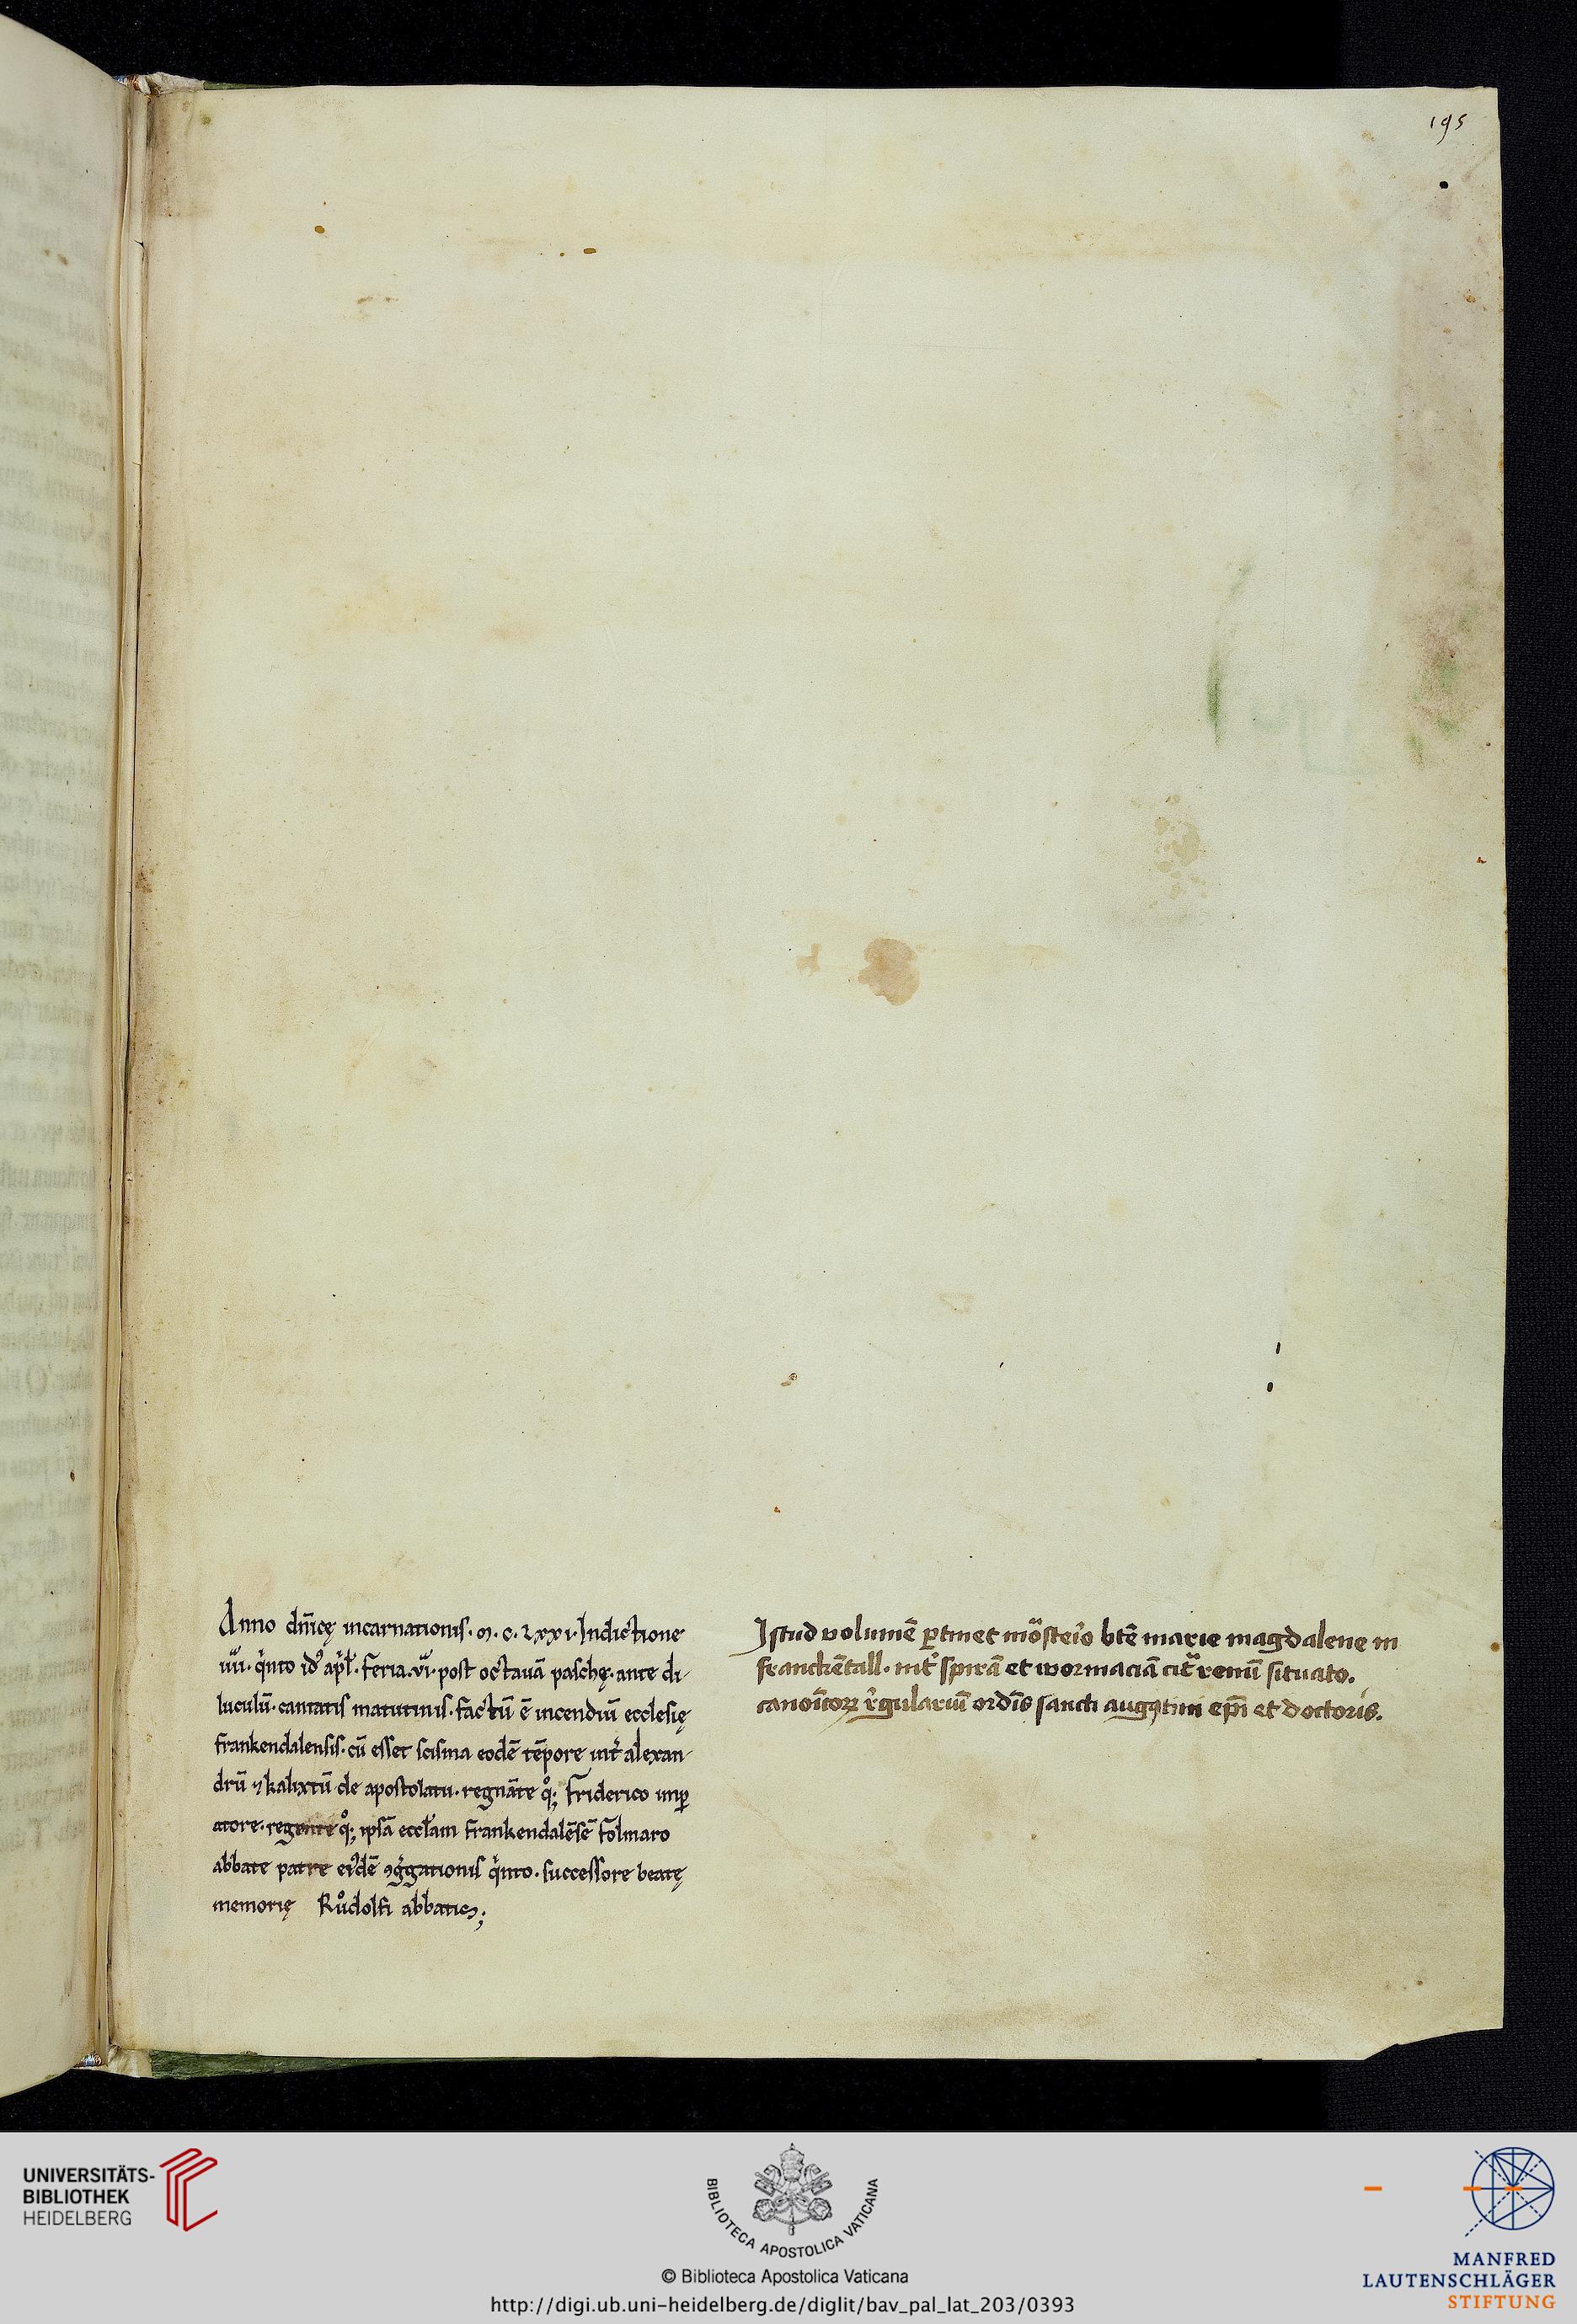 195
Anno dn̄icę incarnationis. ꝏ. c. lxxi. Indictione
iiii. qͥnto idꝰ apͥl̄. feria. vi. post octauā paschę. ante di-
luculū. cantatis matutinis. factū ē incendiū ecclesię
frankendalensis. cū esset scisma eodē tēpore int̄ alexan-
drū ⁊ kalixtū de apostolatu. regnāte qͦ; friderico imꝑ
atore. regente qͦ; ipsā eccl̄am frankendalēsē folmaro
abbate patre eiꝰdē ꝯgͥgationis qͥnto. successore beatę
memorię Růdolfi abbatis;
Istud volumē ꝑtinet mōsteīo btē marie magdalene in
franckētall. int̄ spirā et wormaciā cit̄ renū situato.
canōicoꝝ r̄gulariū ordīs sancti augꝯtini ep̄i et doctoris.
UNIVERSITÄTS-
BIBLIOTHEK
HEIDELBERG
BIBLIOTECA APOSTOLICA VATICANA
© Biblioteca Apostolica Vaticana
http://digi.ub.uni-heidelberg.de/diglit/bav_pal_lat_203/0393
MANFRED
LAUTENSCHLÄGER
STIFTUNG